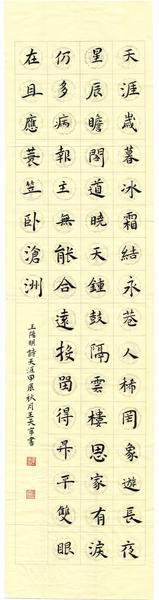 天涯歲暮冰霜結永巷人稀罔象遊長夜
星辰瞻閣道曉天鐘鼓隔雲樓思家有淚
仍多病報主無能合遠投留得昇平雙眼
在且應蓑笠卧滄洲
王陽明詩天涯甲辰秋月王天軍書